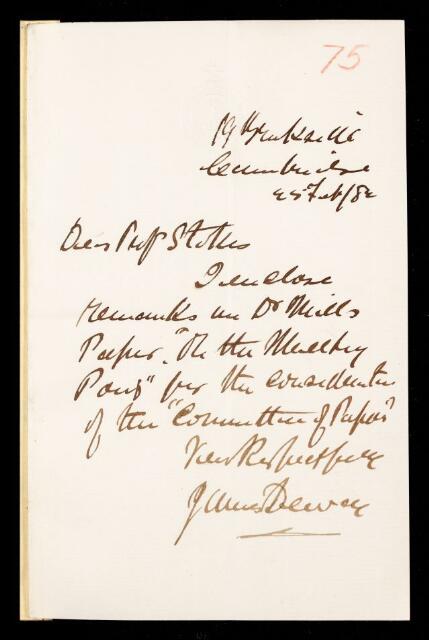 75
19 Brookside
Cambridge
25 Feb/82
Dear Prof Stokes
I enclose
remarks on Dr Mills
Paper. "On the Melting
Point" for the consideration
of the "Committee of Papers"
Yours Respectfully
James Dewar